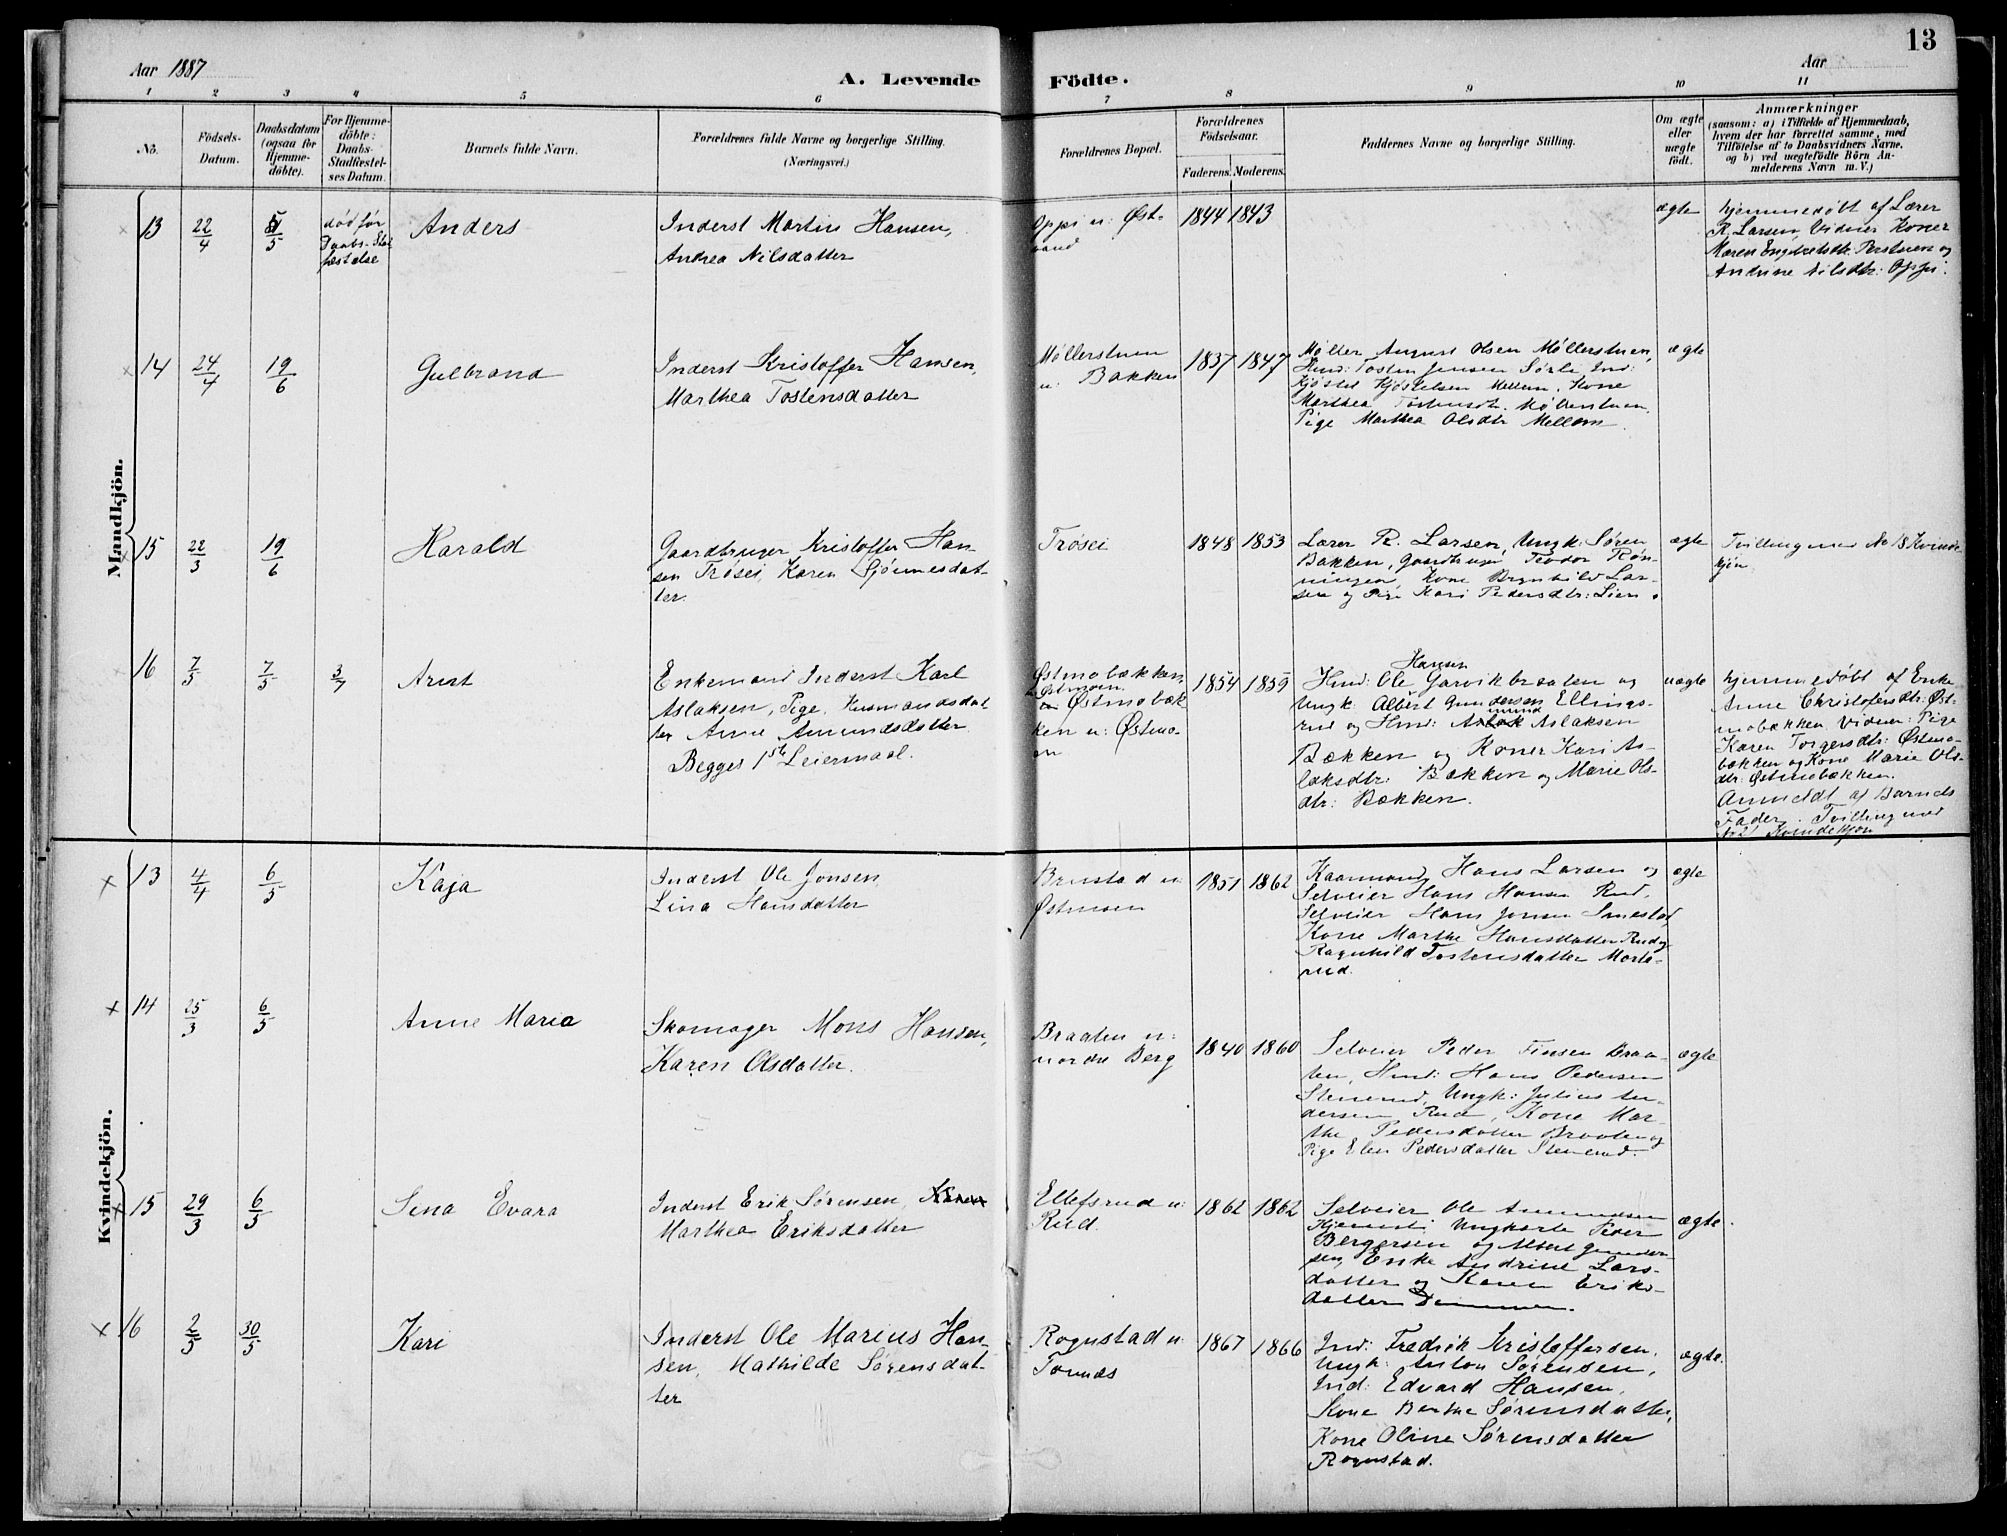 13
Aar 1887
A. Levende Födte.
Aar
1 2 3 4 5 6 7 8 9 10 11
No.
Födsels-Datum.
Daabsdatum (ogsaa for Hjemme-döbte).
For Hjemme-döbte: Daabs-Stadfæstel-ses Datum.
Barnets fulde Navn.
Forældrenes fulde Navne og borgerlige Stilling.
(Næringsvei.)
Forældrenes Bopæl.
Forældrenes Födselsaar.
Faderens. Moderens.
Faddernes Navne og borgerlige Stilling.
Om ægte eller uægte födt.
Anmærkninger
(saasom: a) i Tilfælde af Hjemmedaab,
hvem der har forrettet samme, med
Tilföielse af to Daabsvidners Navne,
og b) ved uægtefödte Börn An-
melderens Navn m. V.)
Mandkjön.
13 22/4 8/5 død før Daabs-Stadfæstelse
Anders
Inderst Martin Hansen,
Andrea Nilsdatter
Oppi u: Øst-
1844 1843
ægte
hjemmedøbt af Lærer
R. Larsen, Vidner Koner
Maren og
Andrine Nilsdtr: Oppi.
14 24/4 19/6
Gulbrand
Inderst Kristoffer Hansen,
Marthea Tostensdatter
Møllerstuen
u: Bakken
1837 1847
Møller August Olsen Møllerstuen,
Hmd: Tosten Jensen Sørli, Ind:
Kjøstel Kjøstelsen Mellem, Kone
Marthea Tostensdtr. Møllerstuen,
Pige Marthea Olsdtr Mellem.
ægte
15 22/3 19/6
Harald
Gaardbruger Kristoffer Han-
sen Trøsei, Karen Sjønnesdat-
ter.
Trøsei
1848 1853
Lærer R. Larsen, Ungk: Søren
Bakken, Gaardbruger Teodor Røn-
ningen, Kone Brynhild Lar-
sen og Pige Kari Pedersdtr: Lien.
ægte
Tvilling med No 18 Kvinde-
kjøn
16 7/5 7/5 3/7
Arnt
Enkemand Inderst Karl
Aslaksen, Pige, Husmandsdat-
ter Anne Amundsdatter
Begges 1ste Leiermaal.
Østmobækken
u: Østmoen
Østmobæk
ken u: Østmo-
en
1854 1859
Hansen
Hmd: Ole Garvikbraaten og
Ungk: Albert Gundersen Ellings-
rud og Hmd: Aslak Aslaksen
Bækken og Koner Kari As-
laksdtr: Bækken og Marie Ols-
dtr: Bækken.
uægte
hjemmedøbt af Enke
Anne Christofersdtr: Øst-
mobækken Vidner: Pige
Karen Torgersdtr: Østmo-
bækken og Kone Marie Ols-
dtr: Østmobækken.
Anmeldt af Barnets
Fader. Tvilling med
No 21 Kvindekjøn
Kvindekjön.
13 4/4 6/5
Kaja
Inderst Ole Jonsen,
Lina Hansdatter
Brustad u:
Østmoen
1851 1862
Kaarmand Hans Larsen og
Selveier Hans Hansen Rud,
Selveier Hans Jonsen Smestad,
Kone Marthe Hansdatter Rud og
Ragnhild Tostensdatter Morte-
rud.
ægte
14 25/3 6/5
Anne Maria
Skomager Mons Hansen,
Karen Olsdatter.
Braaten u:
nordre Berg
1840 1860
Selveier Peder Finsen Braa-
ten, Hmd: Hans Pedersen
Stenerud, Ungk: Julius An-
dersen Rud, Kone Mar-
the Pedersdatter Braaten og
Pige Elen Pedersdatter Stenerud.
ægte
15 29/3 6/5
Lina Evara
Inderst Erik Sørensen, Karen
Marthea Eriksdatter
Ellefsrud u:
Rud.
1862 1862
Selveier Ole Amundsen
Hjemsti, Ungkarle Peder
Bergersen og Albert Gunder-
sen, Enke Andrine Lars-
datter og Karen Eriks-
datter
ægte.
16 2/5 30/5
Kari
Inderst Ole Marius Han-
sen, Mathilde Sørensdat-
ter
Rognstad u:
Tomæs
1867 1866
Ind: Fredrik Kristoffersen,
Ungk: Anton Sørensen,
Ind: Edvard Hansen,
Kone Berthe Sørensdatter,
Kone Oline Sørensdatter
Rognstad.
ægte.